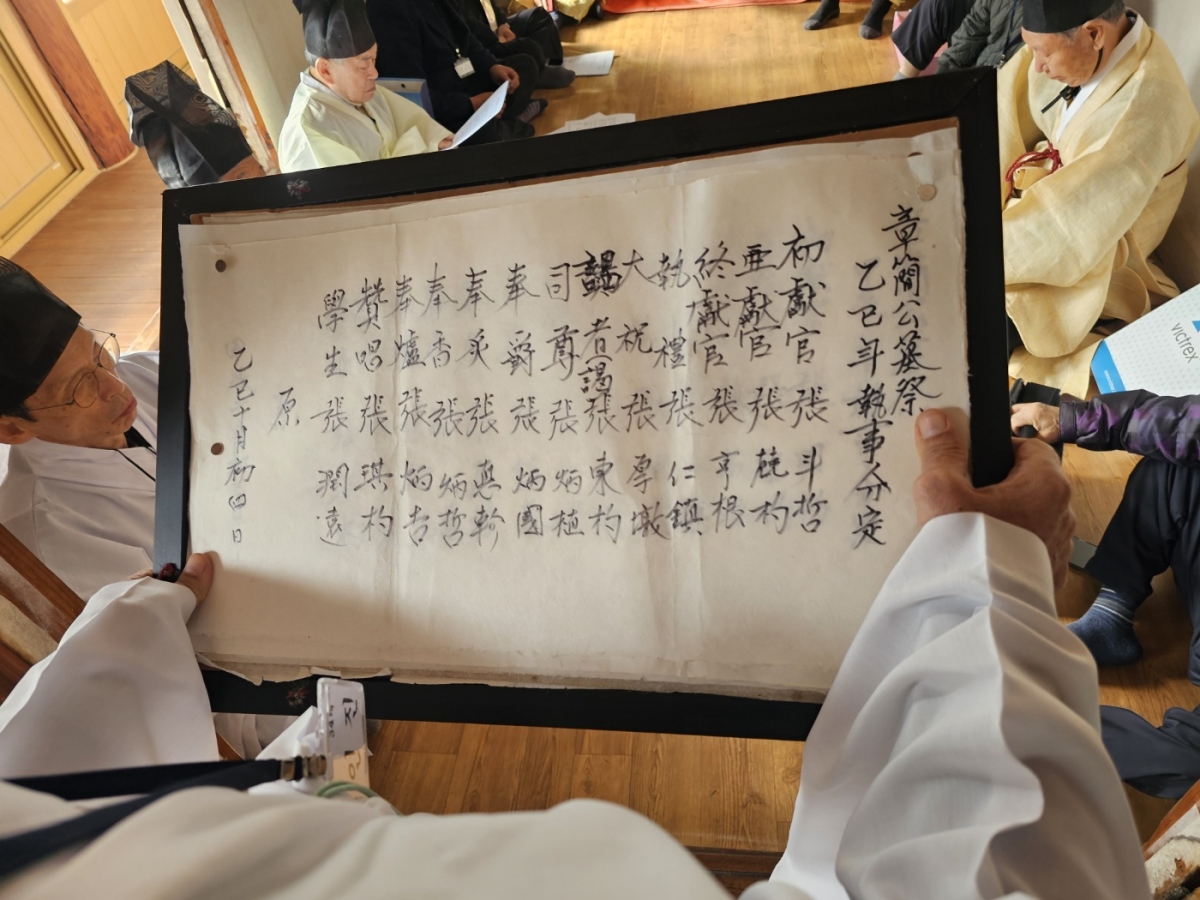 章簡公墓祭
乙巳年執事分定
初獻官 張斗哲
亞獻官 張 杓
終獻官 張亨根
執禮 張仁鎮
大祝 張厚墩
謁者(謁) 張東杓
司尊 張炳植
奉爵 張炳國
奉炙 張 幹
奉香 張炳哲
奉爐 張炳吉
贊唱 張琪杓
學生 張潤遠
原
乙巳十月初四日
victrex
진